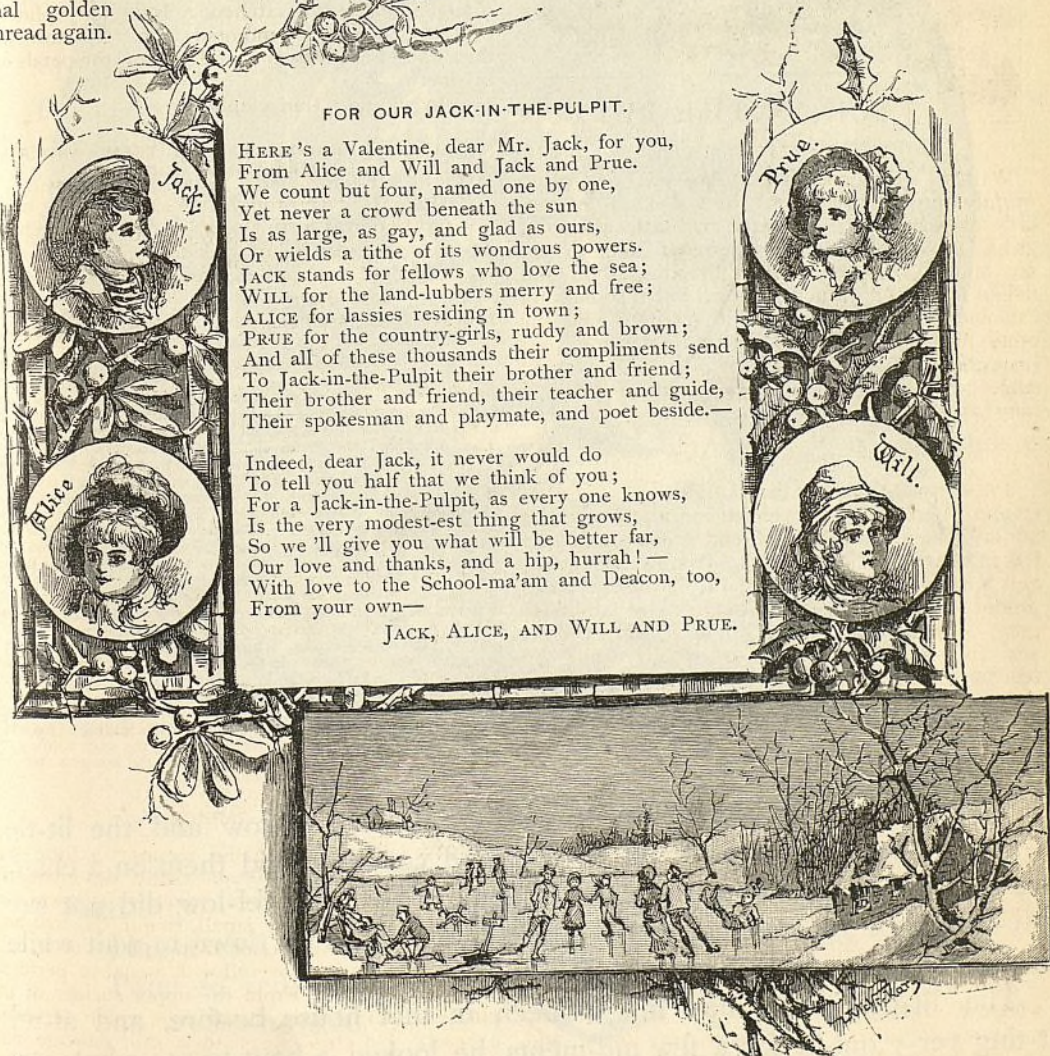 nal golden
hread again.
FOR OUR JACK-IN-THE-PULPIT.
HERE 's a Valentine, dear Mr. Jack, for you,
From Alice and Will and Jack and Prue.
We count but four, named one by one,
Yet never a crowd beneath the sun
Is as large, as gay, and glad as ours,
Or wields a tithe of its wondrous powers.
JACK stands for fellows who love the sea;
WILL for the land-lubbers merry and free;
ALICE for lassies residing in town;
PRUE for the country-girls, ruddy and brown;
And all of these thousands their compliments send
To Jack-in-the-Pulpit their brother and friend;
Their brother and friend, their teacher and guide,
Their spokesman and playmate, and poet beside.—
Indeed, dear Jack, it never would do
To tell you half that we think of you;
For a Jack-in-the-Pulpit, as every one knows,
Is the very modest-est thing that grows,
So we 'll give you what will be better far,
Our love and thanks, and a hip, hurrah! —
With love to the School-ma'am and Deacon, too,
From your own—
JACK, ALICE, AND WILL AND PRUE.
Jack.
Alice
Prue.
Will.